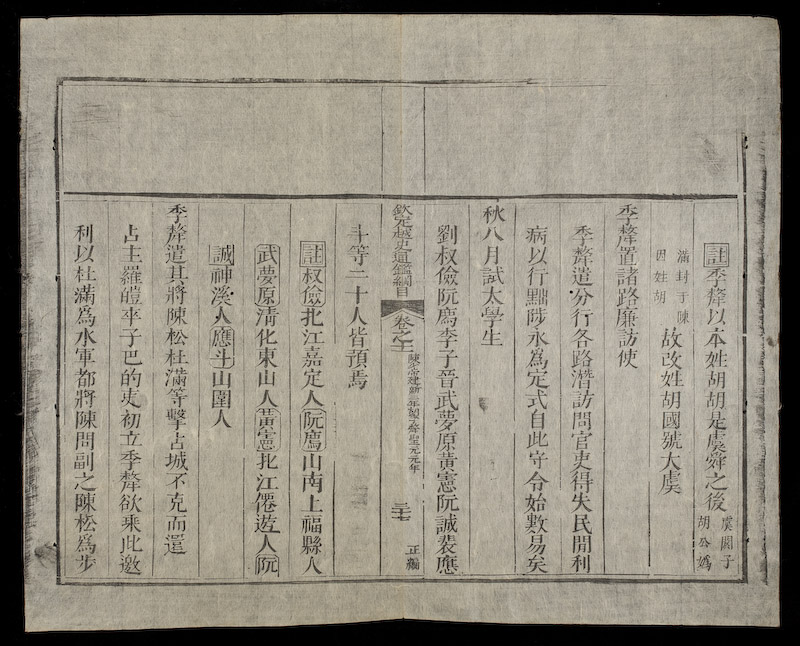 註季犛以本姓胡胡是虞舜之後虞閼子胡公媯
滿封于陳因姓胡故改姓胡國號大虞
季犛置諸路廉訪使
季犛遣分行各路潛訪問官吏得失民間利
病以行黜陟永爲定式自此守令始數易矣
秋八月試太學生
劉叔儉阮廌李子晉武夢原黃憲阮誠裴應
欽定越史通鑑綱目 卷之 陳少帝建新三年胡季犛聖元元年 正編
斗等二十人皆預焉
註叔儉北江嘉定人阮廌山南上福縣人
武夢原清化東山人黃憲北江僊遊人阮
誠神溪人應斗山圍人
季犛遣其將陳松杜滿等擊占城不克而還
占主羅皚卒子巴的吏初立季犛欲乘此邀
利以杜滿爲水軍都將陳問副之陳松爲步